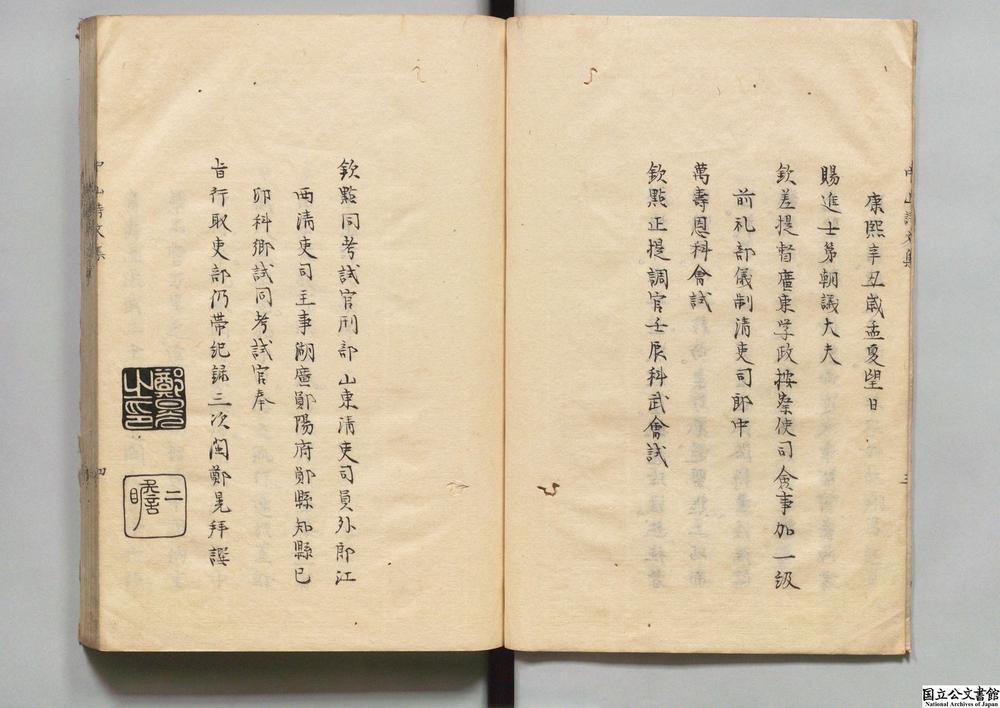 康熙辛丑歲孟夏望日
賜進士第朝議大夫
欽差提督廣東学政按察使司僉事加一級
前礼部儀制清吏司郎中
萬壽恩科會試
欽點正提調官壬辰科武會試
欽點同考試官刑部山東清吏司員外郎江
西清吏司主事湖廣鄖陽府鄖縣知縣已
卯科鄉試同考試官奉
旨行取吏部仍帶紀錄三次閩鄭晃拜譔
鄭晃之印
二瞻
中山詩文集
三
中山詩文集
四
国立公文書館
National Archives of Japan